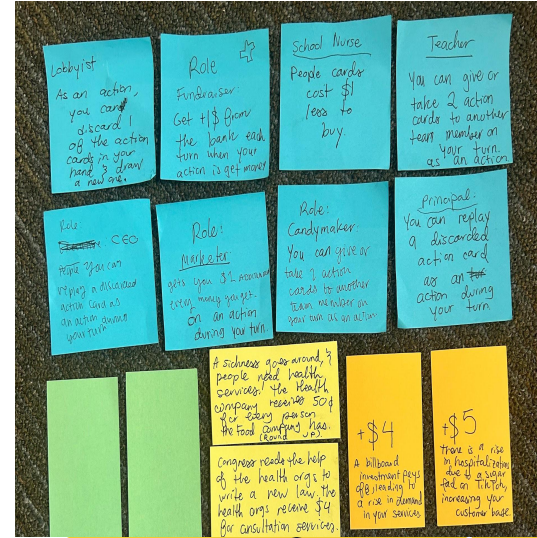 Lobbyist
As an action,
you can
discard 1
of the action
cards in your
hand & draw
a new one.
Role
Fundraiser:
Get +1$ from
the bank each
turn when your
action is get money
School Nurse
People cards
cost $1
less to
buy.
Teacher
You can give or
take 2 action
cards to another
team member on
your turn.
as an action
Role:
CEO
People You can
replay a discarded
action card as
an action during
your turn
Role:
Marketer
gets you $1
every money you get.
on an action
during your turn.
Role:
Candymaker:
You can give or
take 2 action
cards to another
team member on
your turn as an action
Principal:
You can replay
a discarded
action card
as an
action during
your turn
A sickness goes around, &
people need health
services. The Health
company receives 50¢
for every person
the Food company has.
(Round up)
Congress needs the help
of the health orgs to
write a new law. The
health orgs receive $4
for consultation services.
+$4
A billboard
investment pays
off, leading to
a rise in demand
in your services
+$5
there is a rise
in hospitalizations
due to a sugar
fad on TikTok,
increasing your
customer base.